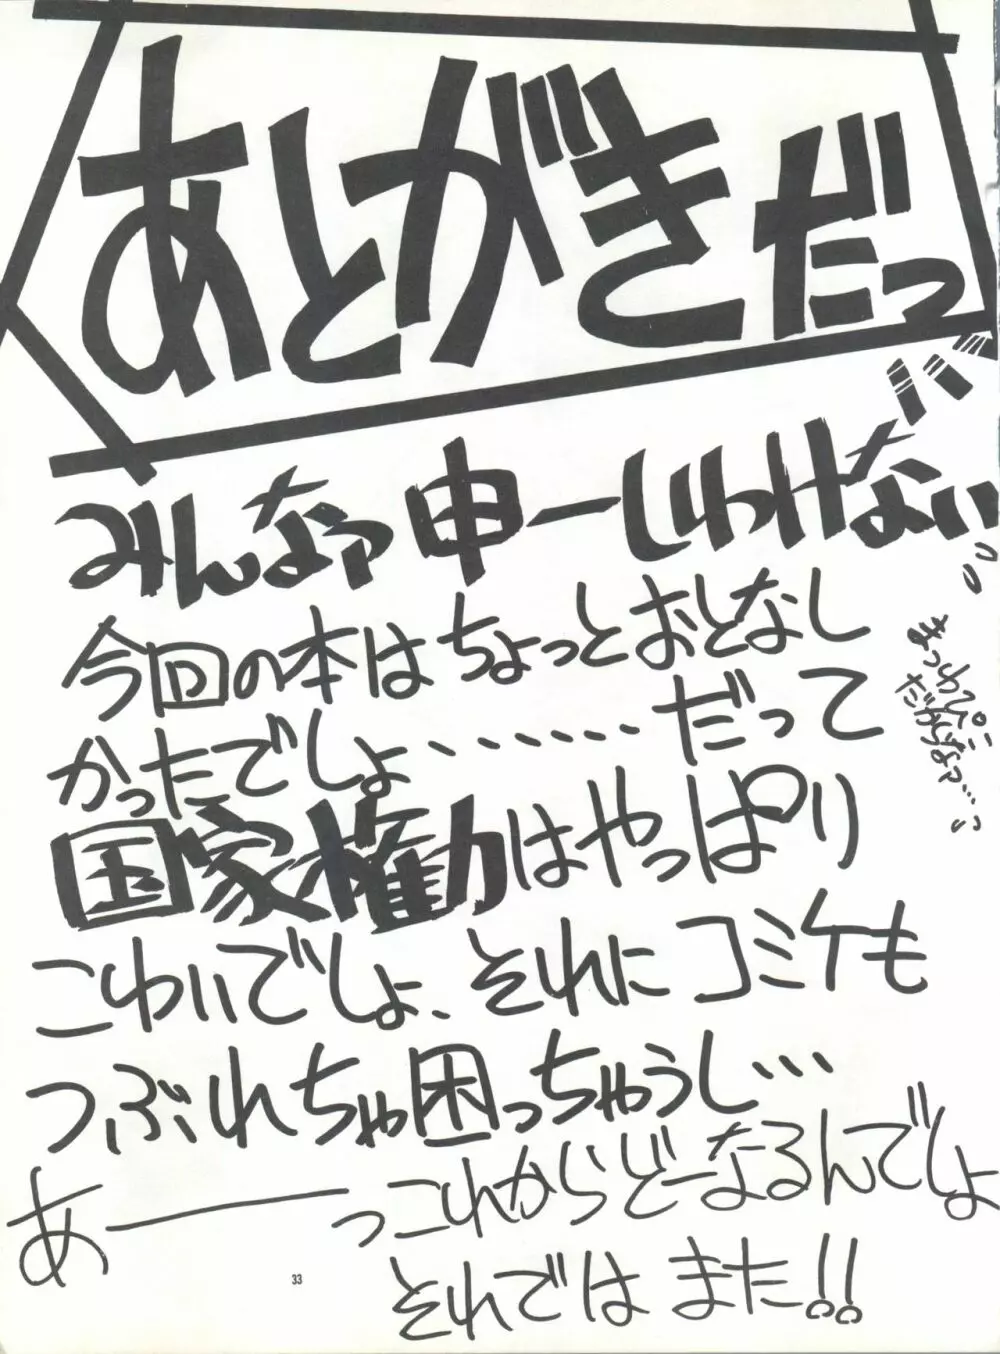 あとがきだっ
みんなァ申ーしわけないっ
今回の本はちょっとおとなし
かったでしょ・・・・・・・だって
国家権力はやっぱり
こわいでしょ、それにコミケも
つぶれちゃ困っちゃうし・・・
あーーっこれからどーなるんでしょ
それではまた!!
33